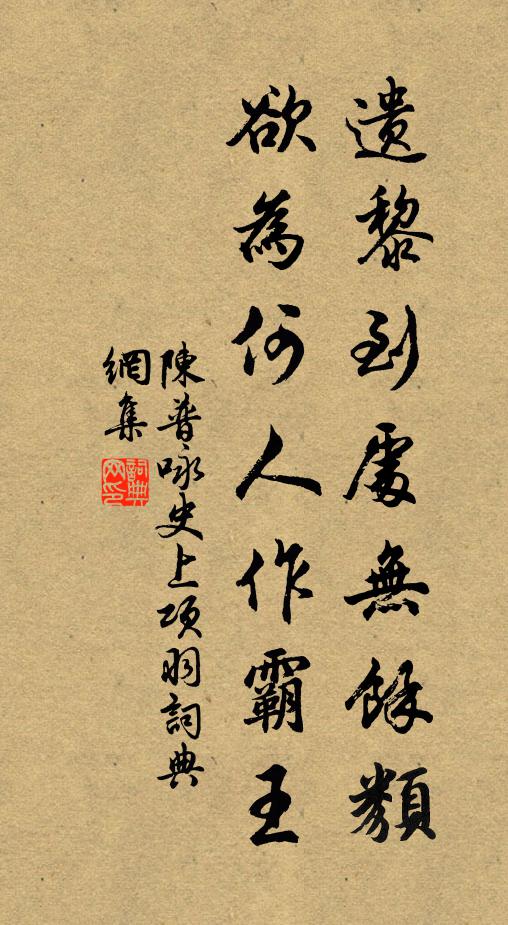 遺黎到處無餘類
欲為何人作霸王
陳普咏史上項羽詞典
網集
詞典網印